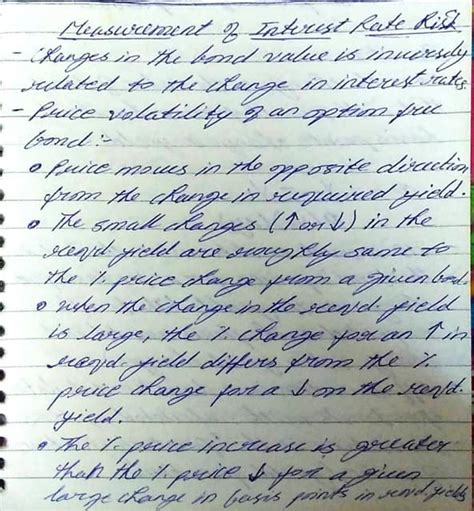 Measurement of Interest Rate Risk
- Changes in the bond value is inversely
related to the change in interest rates
- Price volatility of an option free
bond:-
• Price moves in the opposite direction
from the change in required yield.
• The small changes (↑ or ↓) in the
reqd. yield are roughly same to
the % price change from a given bond
• when the change in the reqd. yield
is large, the % change for an ↑ in
reqd. yield differs from the %
price change for a ↓ on the reqd.
yield.
• The % price increase is greater
than the % price ↓ for a given
large change in basis points in reqd. yields